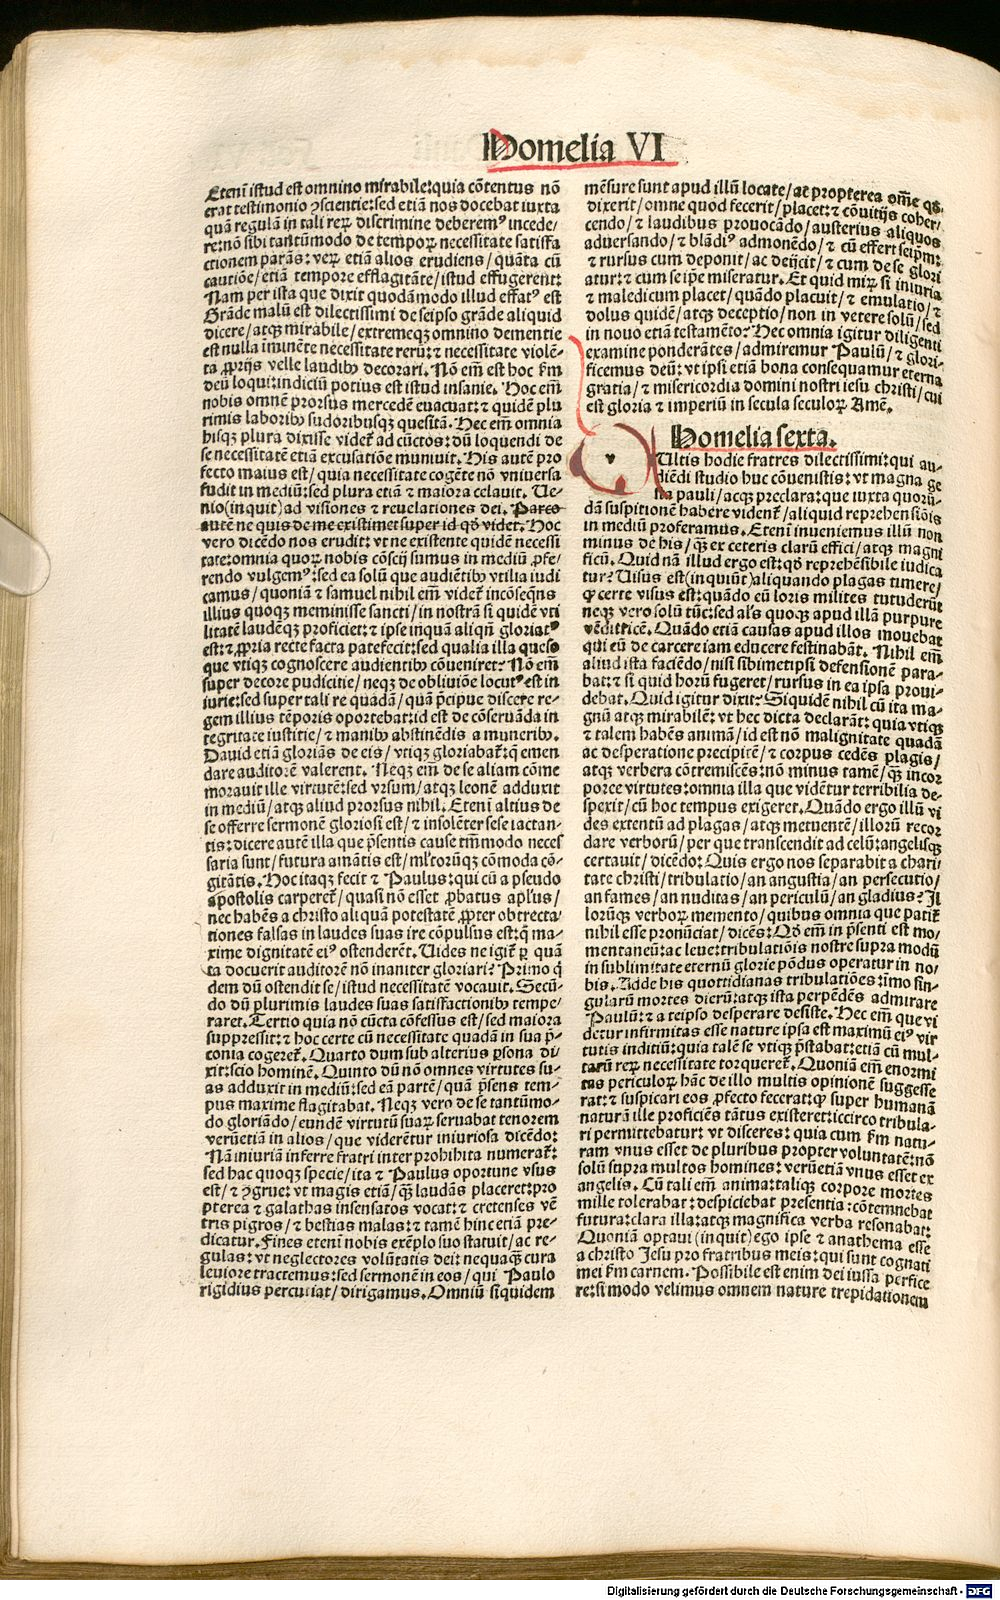 Homelia VI
Etenī istud est omnino mirabile: quia cōtentus nō
erat testimonio ꝯscientie: sed etiā nos docebat iuxta
quā regulā in tali reꝝ discrimine deberemꝰ incede/
re: nō sibi tantūmodo de tempoꝝ necessitate satisfa
ctionem parās: veꝝ etiā alios erudiens/ quāta cū
cautiōe/ etiā tempore efflagitāte/ istud effugerent:
Nam per ista que dixit quodāmodo illud effatꝰ est
Grāde malū est dilectissimi de seipso grāde aliquid
dicere/ atqꝫ mirabile/ extremeqꝫ omnino dementie
est nulla iminēte necessitate rerū: ⁊ necessitate violē-
ta ꝓprijs velle laudibꝰ decorari. Nō em̄ est hoc ẜm
deū loqui: indiciū potius est istud insanie. Hoc em̄
nobis omnē prorsus mercedē euacuat: ⁊ quidē plu
rimis laboribꝰ sudoribusqꝫ quesitā. Hec em̄ omnia
hisqꝫ plura dixisse videt̄ ad cūctos: dū loquendi de
se necessitatē etiā excusatiōe muniuit. His autē pro
fecto maius est/ quia necessitate cogēte nō vniuersa
fudit in mediū: sed plura etiā ⁊ maiora celauit. Ue-
nio (inquit) ad visiones ⁊ reuelationes dei. Parco
autē ne quis de me existimet super id qḋ videt. Hoc
vero dicēdo nos erudit: vt ne existente quidē necessi
tate: omnia quoꝝ nobis cōscij sumus in mediū ꝓfe/
rendo vulgemꝰ: sed ea solū que audiētibꝰ vtilia iudi
camus/ quoniā ⁊ samuel nihil em̄ videt̄ incōseqn̄s
illius quoqꝫ meminisse sancti/ in nostrā si quidē vti
litatē laudēqꝫ proficiet: ⁊ ipse inquā aliqn̄ gloriatꝰ
est: ⁊ ꝓpria recte facta patefecit: sed qualia illa queso
que vtiqꝫ cognoscere audientibꝰ cōueniret? Nō em̄
super decore pudicitie/ neqꝫ de obliuiōe locutꝰ est in
iurie: sed super tali re quadā/ quā p̄cipue discere re-
gem illius tēporis oportebat: id est de cōseruāda in
tegritate iustitie/ ⁊ manibꝰ abstinēdis a muneribꝰ.
Dauid etiā gloriās de eis/ vtiqꝫ gloriabat̄: q̄ emen
dare auditorē valerent. Neqꝫ em̄ de se aliam cōme
morauit ille virtutē: sed vrsum/ atqꝫ leonē adduxit
in mediū/ atqꝫ aliud prorsus nihil. Etenī altius de
se offerre sermonē gloriosi est/ ⁊ insolēter sese iactan-
tis: dicere autē illa que p̄sentis cause tm̄modo neces
saria sunt/ futura amātis est/ ml̓torūqꝫ cōmoda cō-
gitātis. Hoc itaqꝫ fecit ⁊ Paulus: qui cū a pseudo
apostolis carperet̄/ quasi nō esset ꝓbatus apl̓us/
nec habēs a christo aliquā potestatē ꝓpter obtrecta-
tiones falsas in laudes suas ire cōpulsus est: q̄ ma/
xime dignitatē eiꝰ ostenderēt. Uides ne igit̄ ꝑ quā
ta docuerit auditorē nō inaniter gloriari? Primo q̇
dem dū ostendit se/ istud necessitatē vocauit. Secū-
do dū plurimis laudes suas satisfactionibꝰ tempe/
raret. Tertio quia nō cūcta cōfessus est/ sed maiora
suppressit: ⁊ hoc certe cū necessitate quadā in sua p̄-
conia cogeret̄. Quarto dum sub alterius ꝑsona di/
xit: scio hominē. Quinto dū nō omnes virtutes su-
as adduxit in mediū: sed eā partē/ quā p̄sens tem-
pus maxime flagitabat. Neqꝫ vero de se tantūmo-
do gloriādo/ eundē virtutū suaꝝ seruabat tenorem
verūetiā in alios/ que viderētur iniuriosa dicēdo:
Nā iniuriā inferre fratri inter prohibita numerat̄:
sed hac quoqꝫ specie/ ita ⁊ Paulus oportune vsus
est/ ⁊ ꝯgrue: vt magis etiā/ qꝫ̄ laudās placeret: pro
pterea ⁊ galathas insensatos vocat: ⁊ cretenses vē
tris pigros/ ⁊ bestias malas: ⁊ tamē hinc etiā pre-
dicatur. Fines etenī nobis exēplo suo statuit/ ac re-
gulas: vt neglectores volūtatis dei: nequaqꝫ̄ cura
leuiore tractemus: sed sermonē in eos/ qui Paulo
rigidius percutiat/ dirigamus. Omniū siquidem
mēsure sunt apud illū locate/ at propterea om̄e qḋ
dixerit/ omne quod fecerit/ placet: ⁊ cōuitijs coher/
cendo/ ⁊ laudibus prouocādo/ austerius aliquos
aduersando/ ⁊ blādiꝰ admonēdo/ ⁊ cū effert seip̄m:
⁊ rursus cum deponit/ ac deijcit/ ⁊ cum de se glori
atur: ⁊ cum se ip̄e miseratur. Et quid miꝝ si iniuria
⁊ maledicum placet/ quādo placuit/ ⁊ emulatio/ ⁊
dolus quidē/ atqꝫ deceptio/ non in vetere solū/ sed
in nouo etiā testamēto? Hec omnia igitur diligenti
examine ponderātes/ admiremur Paulū/ ⁊ glori-
ficemus deū: vt ipsi etiā bona consequamur eterna
gratia/ ⁊ misericordia domini nostri iesu christi/ cui
est gloria ⁊ imperiū in secula seculoꝝ Amē.
Homelia sexta.
Ultis hodie fratres dilectissimi: qui au-
diēdi studio huc cōuenistis: vt magna ge
sta pauli/ acqꝫ preclara: que iuxta quorū-
dā suspitionē habere vident̄/ aliquid reprehensiōis
in mediū proferamus. Etenī inueniemus illū non
minus de his/ qꝫ̄ ex ceteris clarū effici/ atqꝫ magni
ficū. Quid nā illud ergo est: qḋ reprehēsibile iudica
tur? Uisus est (inquiūt) aliquando plagas timere/
ꝙ certe visus est: quādo eū loris milites tutuderūt
neqꝫ vero solū tūc: sed al̓s quoqꝫ apud illā purpure
vēditricē. Quādo etiā causas apud illos mouebat
qui eū de carcere iam educere festinabāt. Nihil em̄
aliud ista faciēdo/ nisi sibimetipsi defensionē para-
bat: ⁊ si quid horū fugeret/ rursus in ea ipsa proui-
debat. Quid igitur dixit? Siquidē nihil cū ita ma-
gnū atqꝫ mirabilē: vt hec dicta declarāt: quia vtiqꝫ
⁊ talem habēs animā/ id est nō malignitate quadā
ac desperatione precipitē/ ⁊ corpus cedēs plagis/
atqꝫ verbera cōtremiscēs: nō minus tamē/ qꝫ̄ incor
poree virtutes: omnia illa que vidētur terribilia de-
spexit/ cū hoc tempus exigeret. Quādo ergo illū vi
des extentū ad plagas/ atqꝫ metuentē/ illorū recor
dare verborū/ per que transcendit ad celū: angelisqꝫ
certauit/ dicēdo: Quis ergo nos separabit a chari
tate christi/ tribulatio/ an angustia/ an persecutio/
an fames/ an nuditas/ an periculū/ an gladius? Il
lorūqꝫ verboꝝ memento/ quibus omnia que patit̄
nihil esse pronūciat/ dicēs: Qḋ em̄ in p̄senti est mo/
mentaneū: ac leue: tribulatiōis nostre supra modū
in sublimitate eternū glorie pōdus operatur in no/
bis. Adde his quottidianas tribulatiōes: īmo sin-
gularū mortes dierū: atqꝫ ista perpēdēs admirare
Paulū: ⁊ a teipso desperare desiste. Hec em̄ que vi
detur infirmitas esse nature ipsa est maximū eiꝰ vir
tutis inditiū: quia talē se vtiqꝫ p̄stabat: etiā cū mul-
tarū reꝝ necessitate torqueret̄. Quoniā em̄ enormi
tas periculoꝝ hāc de illo multis opinionē suggesse
rat: ⁊ suspicari eos ꝓfecto fecerat: ꝙ super humanā
naturā ille proficiēs tātus existeret: iccirco tribula-
ri permittebatur: vt disceres: quia cum ẜm natu-
ram vnus esset de pluribus propter voluntatē: nō
solū supra multos homines: verūetiā vnus esset ex
angelis. Cū tali em̄ anima: taliqꝫ corpore mortes
mille tolerabat: despiciebat presentia: cōtemnebat
futura: clara illa: atqꝫ magnifica verba resonabat:
Quoniā optaui (inquit) ego ipse ⁊ anathema esse
a christo Jesu pro fratribus meis: qui sunt cognati
mei ẜm carnem. Possibile est enim dei iussa perfice
re: si modo velimus omnem nature trepidationem
Digitalisierung gefördert durch die Deutsche Forschungsgemeinschaft - DFG